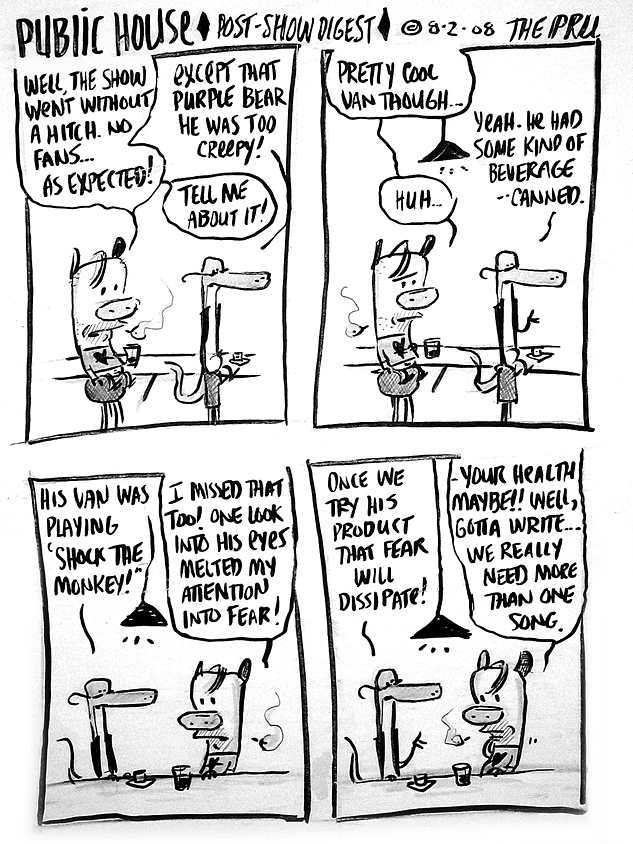 PUBLIC HOUSE ♦ POST-SHOW DIGEST ♦ © 8-2-08 THE PRU
WELL, THE SHOW
WENT WITHOUT
A HITCH. NO
FANS...
AS EXPECTED!
EXCEPT THAT
PURPLE BEAR
HE WAS TOO
CREEPY!
TELL ME
ABOUT IT!
PRETTY COOL
VAN THOUGH...
HUH...
YEAH. HE HAD
SOME KIND OF
BEVERAGE
--CANNED.
HIS VAN WAS
PLAYING
"SHOCK THE
MONKEY!"
I MISSED THAT
TOO! ONE LOOK
INTO HIS EYES
MELTED MY
ATTENTION
INTO FEAR!
ONCE WE
TRY HIS
PRODUCT
THAT FEAR
WILL
DISSIPATE!
-YOUR HEALTH
MAYBE!! WELL,
GOTTA WRITE...
WE REALLY
NEED MORE
THAN ONE
SONG.